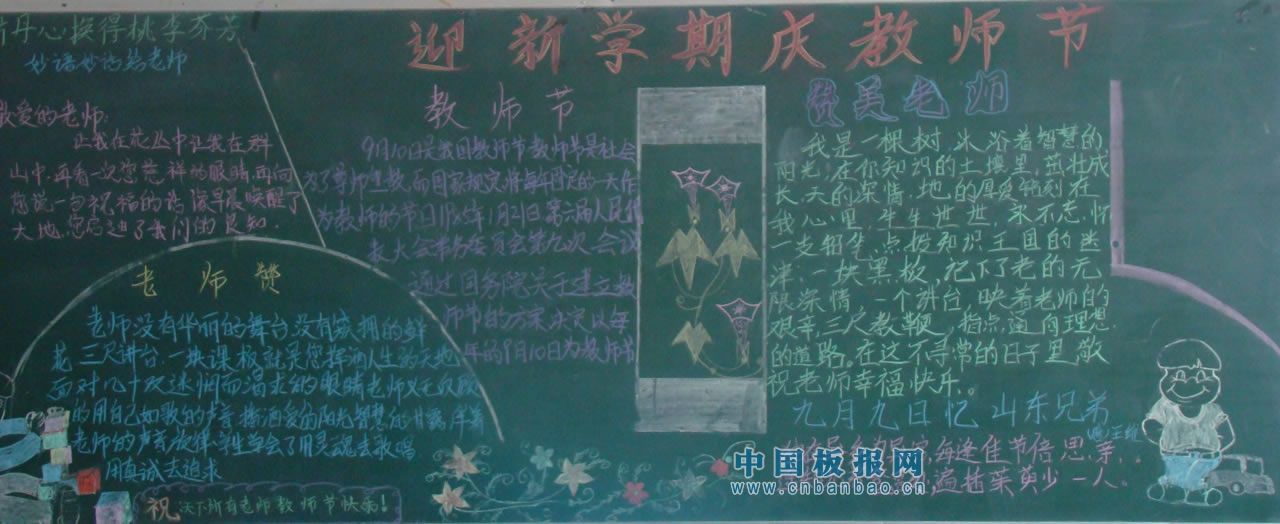 迎新学期庆教师节
丹心换得桃李芬芳
妙语妙说赞老师
爱的老师:
让我在花丛中让我在群
山中,再看一次您慈祥的眼睛,再向
您说一句祝福的
大地,您启迪了我们的良知.
老师赞
老师没有华丽的舞台没有簇拥的鲜
花 三尺讲台一块课板就是您挥洒人生的天地
面对几十双迷惘而渴求的眼睛老师义无反顾
的用自己如歌的声音播洒爱的阳光智慧的甘露伴着
老师的声音旋律学生学会了用灵魂去歌唱
用真诚去追求
祝 天下所有老师教师节快乐!
教师节
9月10日是我国教师节教师节是社会
为了尊师重教而国家规定将每年固定的一天作
为教师的节日1985年1月21日第六届人民代
表大会常务委员会第九次会议
通过国务院关于建立教
师节的方案决定以每
年的9月10日为教师节
赞美老师
我是一棵树沐浴着智慧的
阳光,在你知识的土壤里,茁壮成
长.天的深情,地的厚爱铭刻在
我心里,生生世世,永不忘怀
一支铅笔点拨知识王国的迷
津,一块黑板,记下了老的无
限深情,一个讲台,映着老师的
艰辛,三尺教鞭,指点通向理想
的道路.在这不寻常的日子里,敬
祝老师幸福快乐.
九月九日忆山东兄弟
每逢佳节倍思亲,
遍插茱萸少一人。
中国板报网
www.cnbanbao.cn